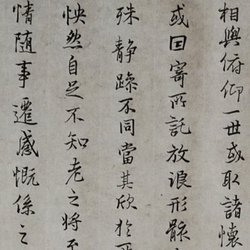 相與俯仰一世或取諸懷
或因寄所託放浪形骸
殊靜躁不同當其欣於所
怏然自足不知老之將
情隨事遷感慨係之